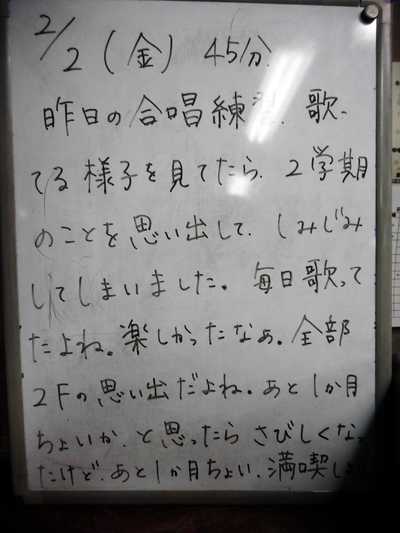 2/2(金) 45分
昨日の合唱練習、歌っ
てる様子を見てたら、2学期
のことを思い出して、しみじみ
してしまいました。毎日歌って
たよね。楽しかったなぁ。全部
2Fの思い出だよね。あと1か月
ちょいか、と思ったらさびしくなっ
たけど、あと1か月ちょい、満喫し